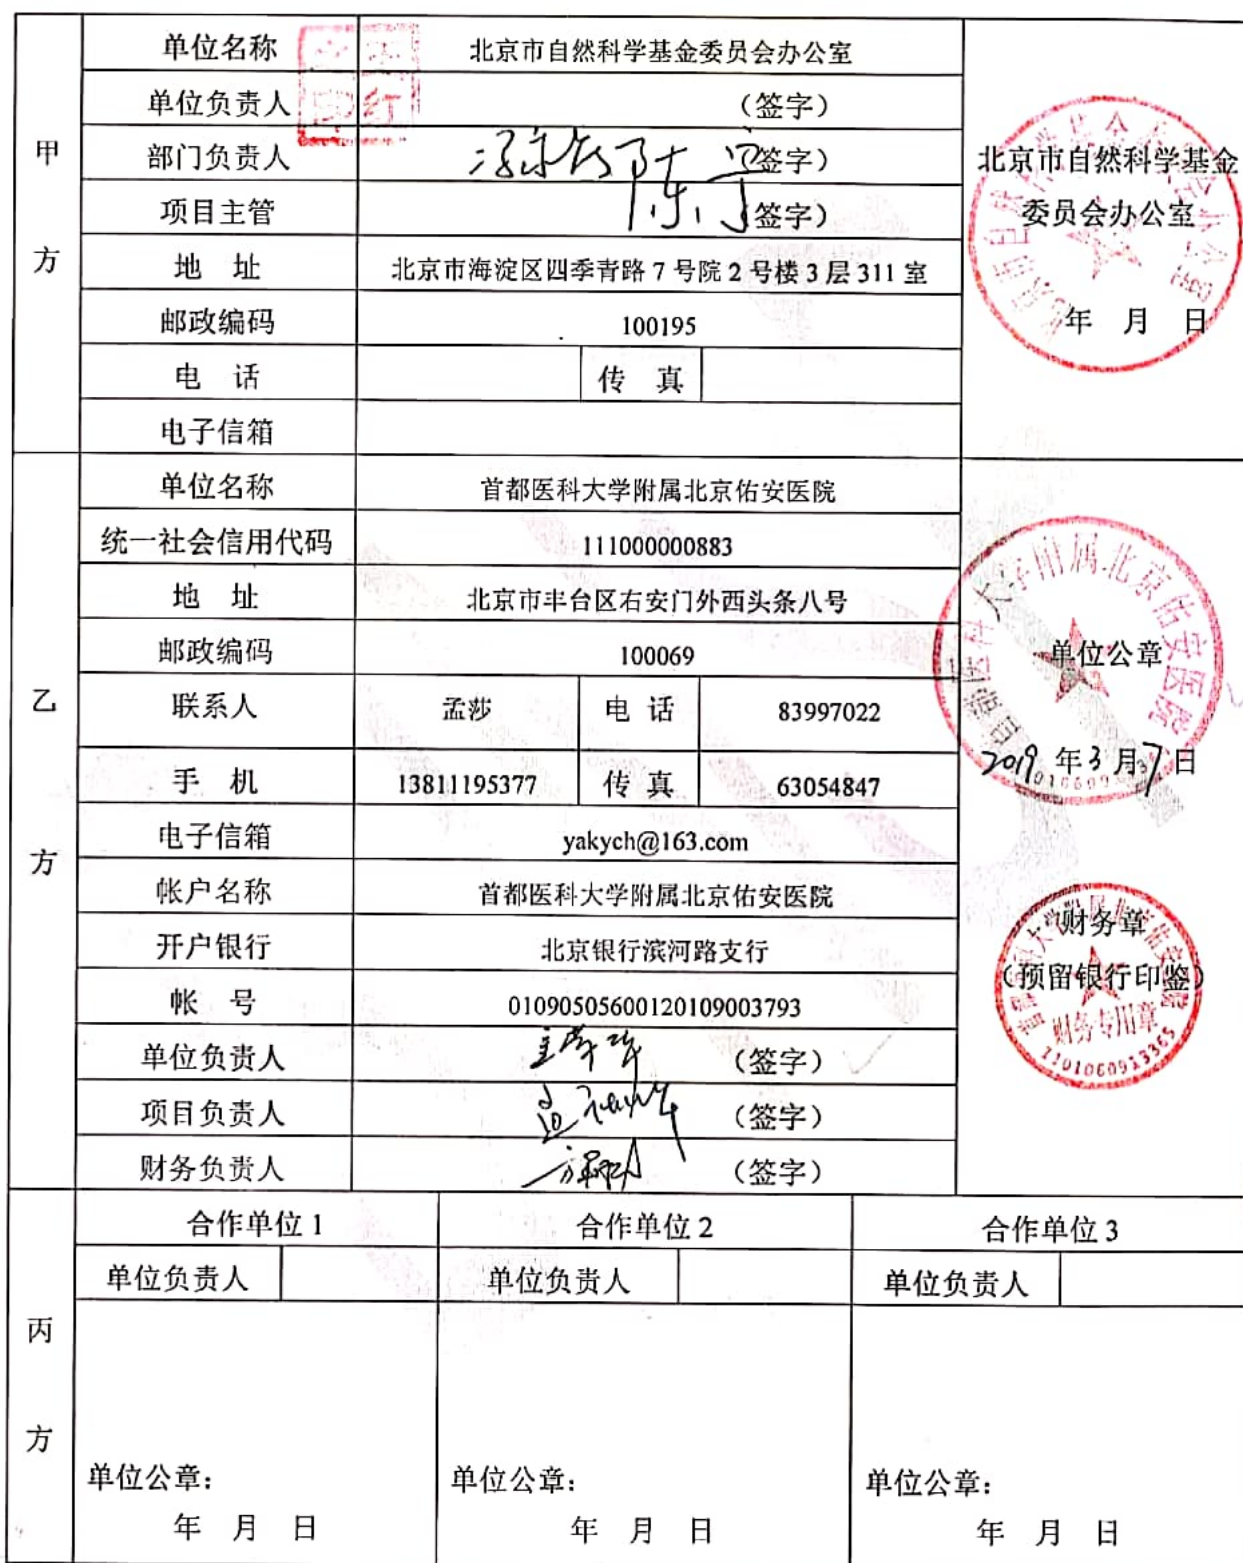 甲方
单位名称 北京市自然科学基金委员会办公室
单位负责人 （签字）
部门负责人 （签字）
项目主管 （签字）
地 址 北京市海淀区四季青路 7 号院 2 号楼 3 层 311 室
邮政编码 100195
电 话 传 真
电子信箱
北京市自然科学基金
委员会办公室
年 月 日
乙方
单位名称 首都医科大学附属北京佑安医院
统一社会信用代码 111000000883
地 址 北京市丰台区右安门外西头条八号
邮政编码 100069
联系人 孟莎 电 话 83997022
手 机 13811195377 传 真 63054847
电子信箱 yakych@163.com
帐户名称 首都医科大学附属北京佑安医院
开户银行 北京银行滨河路支行
帐 号 01090505600120109003793
单位负责人 （签字）
项目负责人 （签字）
财务负责人 （签字）
单位公章
2019 年 3 月 7 日
财务章
（预留银行印鉴）
财务专用章
1101060913365
丙方
合作单位 1 合作单位 2 合作单位 3
单位负责人 单位负责人 单位负责人
单位公章： 单位公章： 单位公章：
年 月 日 年 月 日 年 月 日